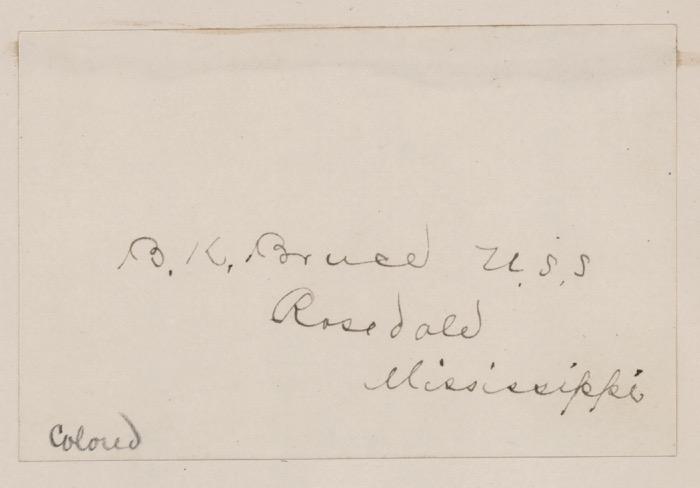 B. K. Bruce U.S.S
Rosedale
Mississippi
Colored